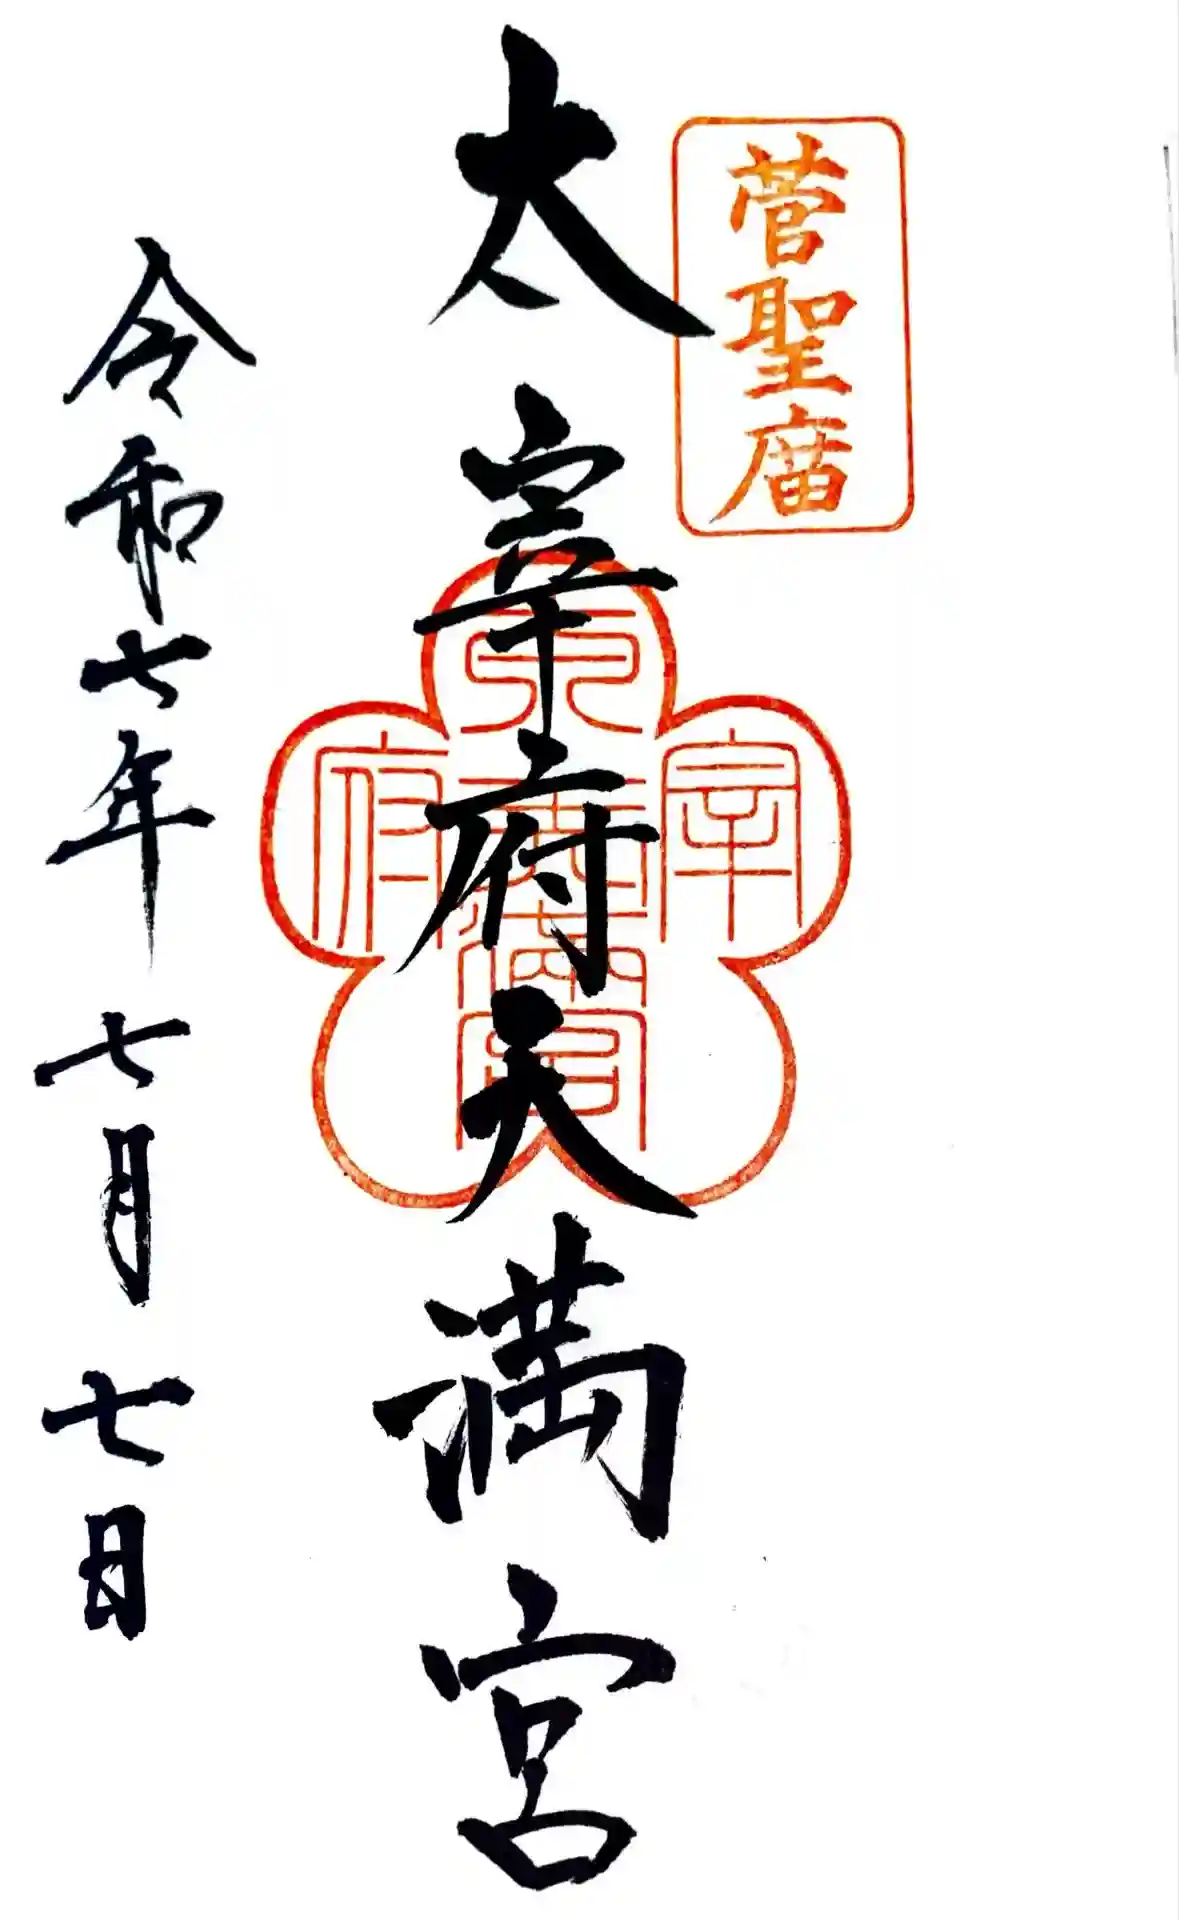 菅聖庿
太宰府天満宮
太宰府天満宮
令和七年七月七日